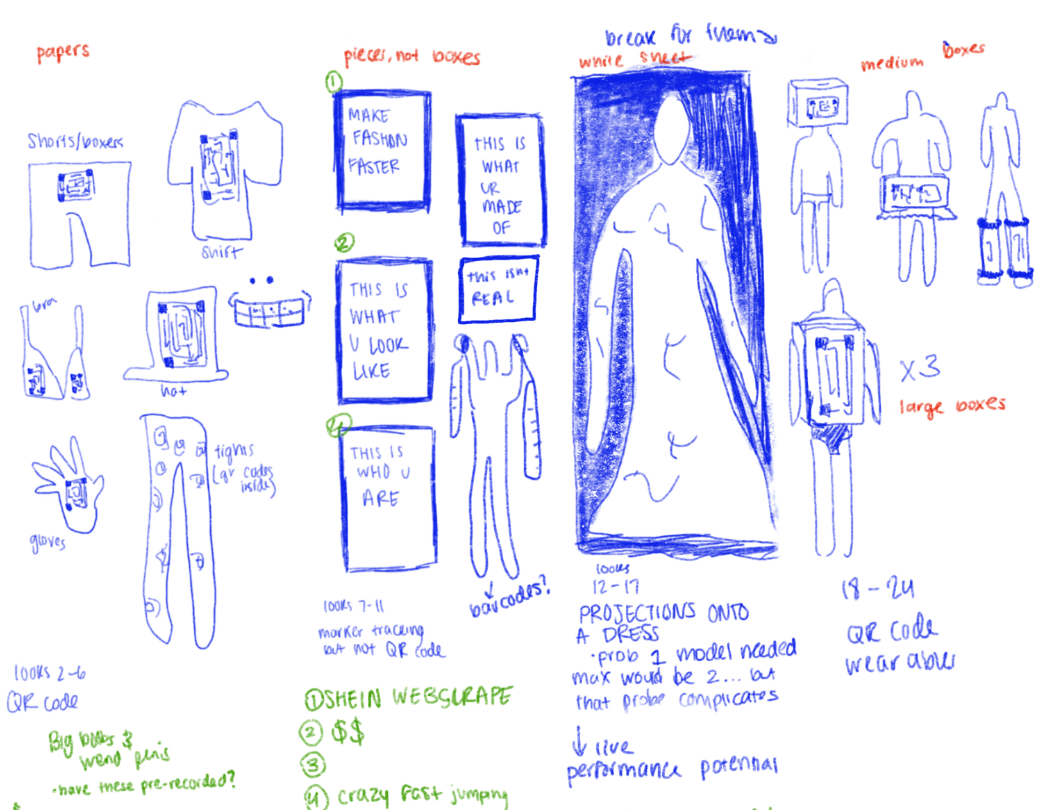 papers
Shorts/boxers
shirt
bra
hat
gloves
tights
(qr codes
inside)
looks 2-6
QR code
Big boobs &
weird penis
·have these pre-recorded?
pieces, not boxes
1
MAKE
FASHION
FASTER
THIS IS
WHAT
UR
MADE
OF
2
THIS IS
WHAT
U LOOK
LIKE
this isnt
REAL
4
THIS IS
WHO U
ARE
barcodes?
looks 7-11
marker tracking
but not QR code
1 SHEIN WEBSCRAPE
2 $$
3
4 crazy fast jumping
break for them
white sheet
looks
12-17
PROJECTIONS ONTO
A DRESS
·prob 1 model needed
max would be 2... but
that probs complicates
↓ live
performance potential
medium boxes
x3
large boxes
18-24
QR code
wearables